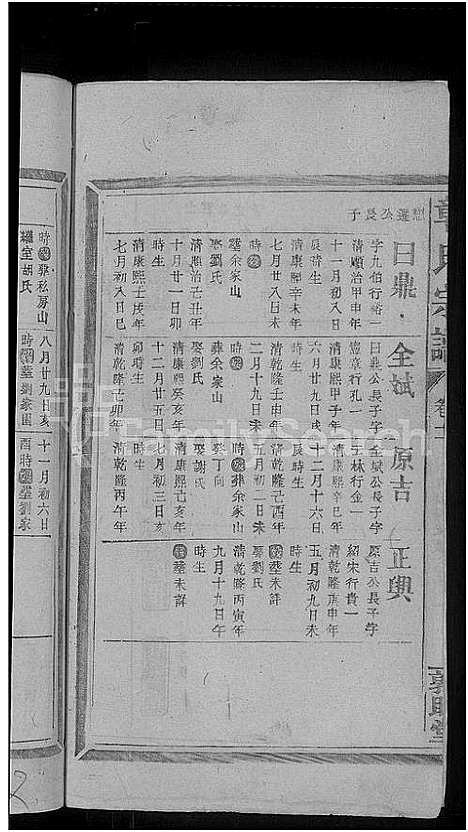 章氏宗譜
卷十
公長子
日鼎
字九伯行裕一
清順治甲申年
十一月初八日
辰時生
清康熙辛未年
七月廿八日未
時歿
塟余家山
娶劉氏
清順治己丑年
十月廿一日卯
時生
清康熙壬戌年
七月初八日巳
時歿葬私房山
繼室胡氏
全斌
日鼎公長子字
憲章行孔一
清康熙甲子年
六月廿九日戌
時生
清乾隆壬申年
二月十九日未
時歿
葬余家山
娶劉氏
清康熙癸亥年
十二月廿五日
卯時生
清乾隆己卯年
八月廿九日亥
時歿塟劉家
原吉
全斌公長子字
玉林行金一
清康熙辛巳年
十二月十六日
辰時生
清乾隆己酉年
五月初二日未
時歿葬余家山
癸丁向
娶胡氏
清康熙己亥年
七月初三日亥
時生
清乾隆丙午年
十一月初六日
酉時歿塟劉家
正興
原吉公長子字
紹宋行貴一
清乾隆庚申年
五月初九日未
時生
歿塟未詳
娶劉氏
清乾隆丙寅年
九月十九日午
時生
歿塟未詳
FamilySearch